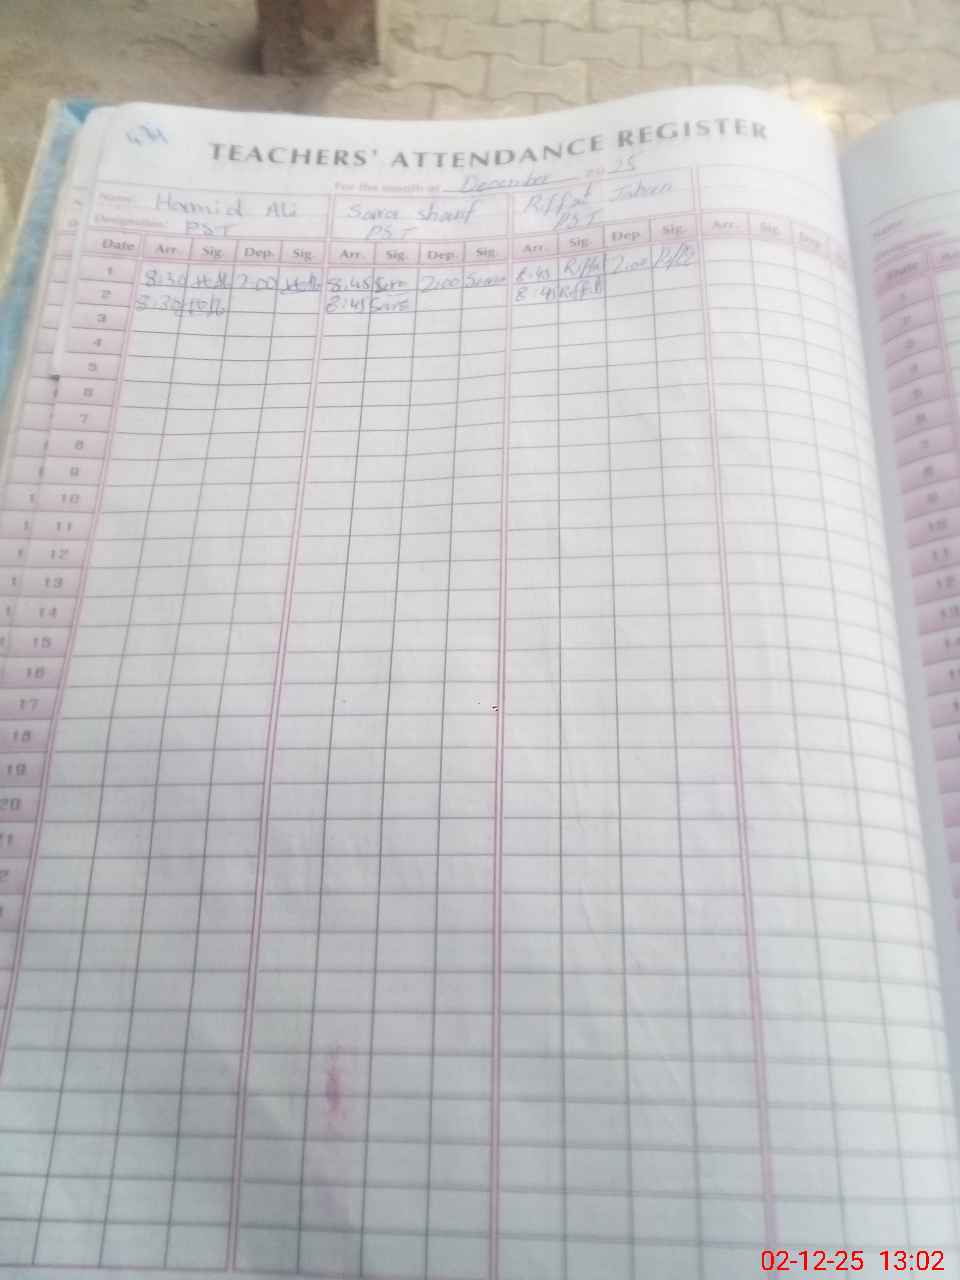 TEACHERS' ATTENDANCE REGISTER
For the month of December 20 25
Name: Hamid Ali Sara Sharif Riffat Jabeen
Designation: PST PST PST
Date Arr. Sig. Dep. Sig. Arr. Sig. Dep. Sig. Arr. Sig. Dep. Sig. Arr. Sig. Dep.
1 8:30 2:00 8:45 Sara 2:00 Sara 8:45 Riffat 2:00
2 8:30 8:45 Sara 8:45 Riffat
3
4
5
6
7
8
9
10
11
12
13
14
15
16
17
18
19
20
02-12-25 13:02